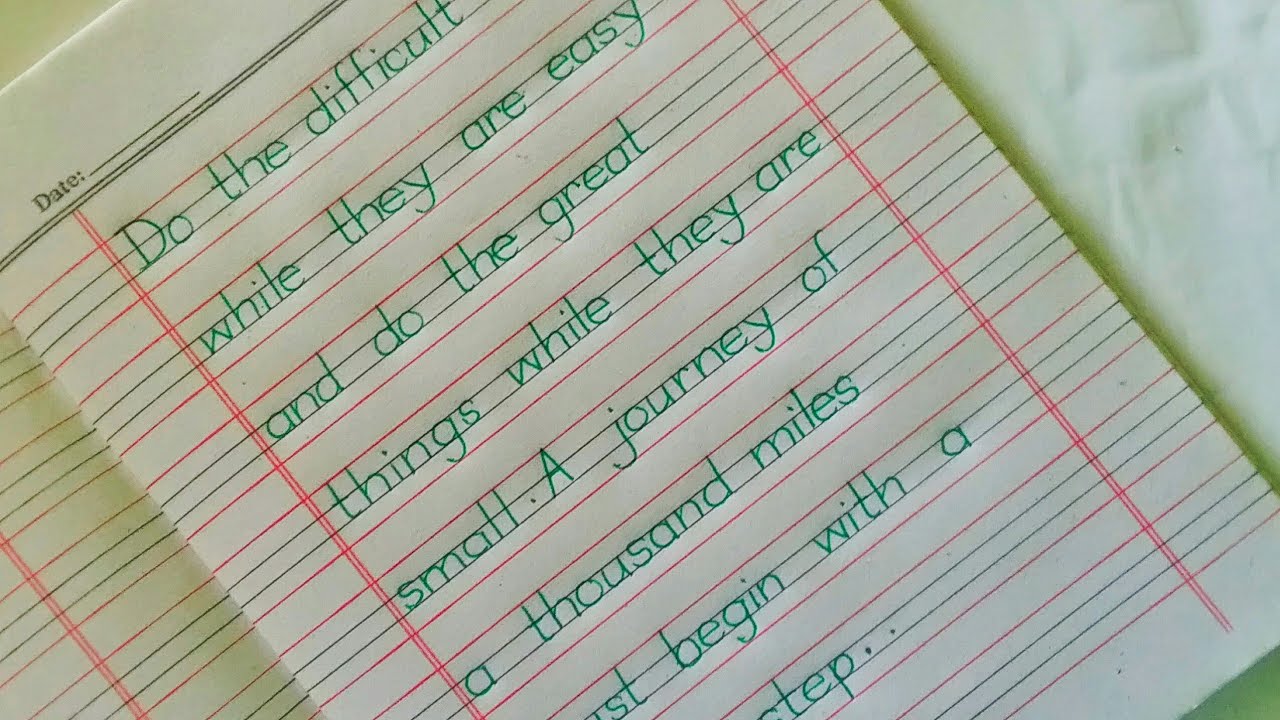 Date:
Do the difficult
while they are easy
and do the great
things while they are
small. A journey of
a thousand miles
begin with a
step.